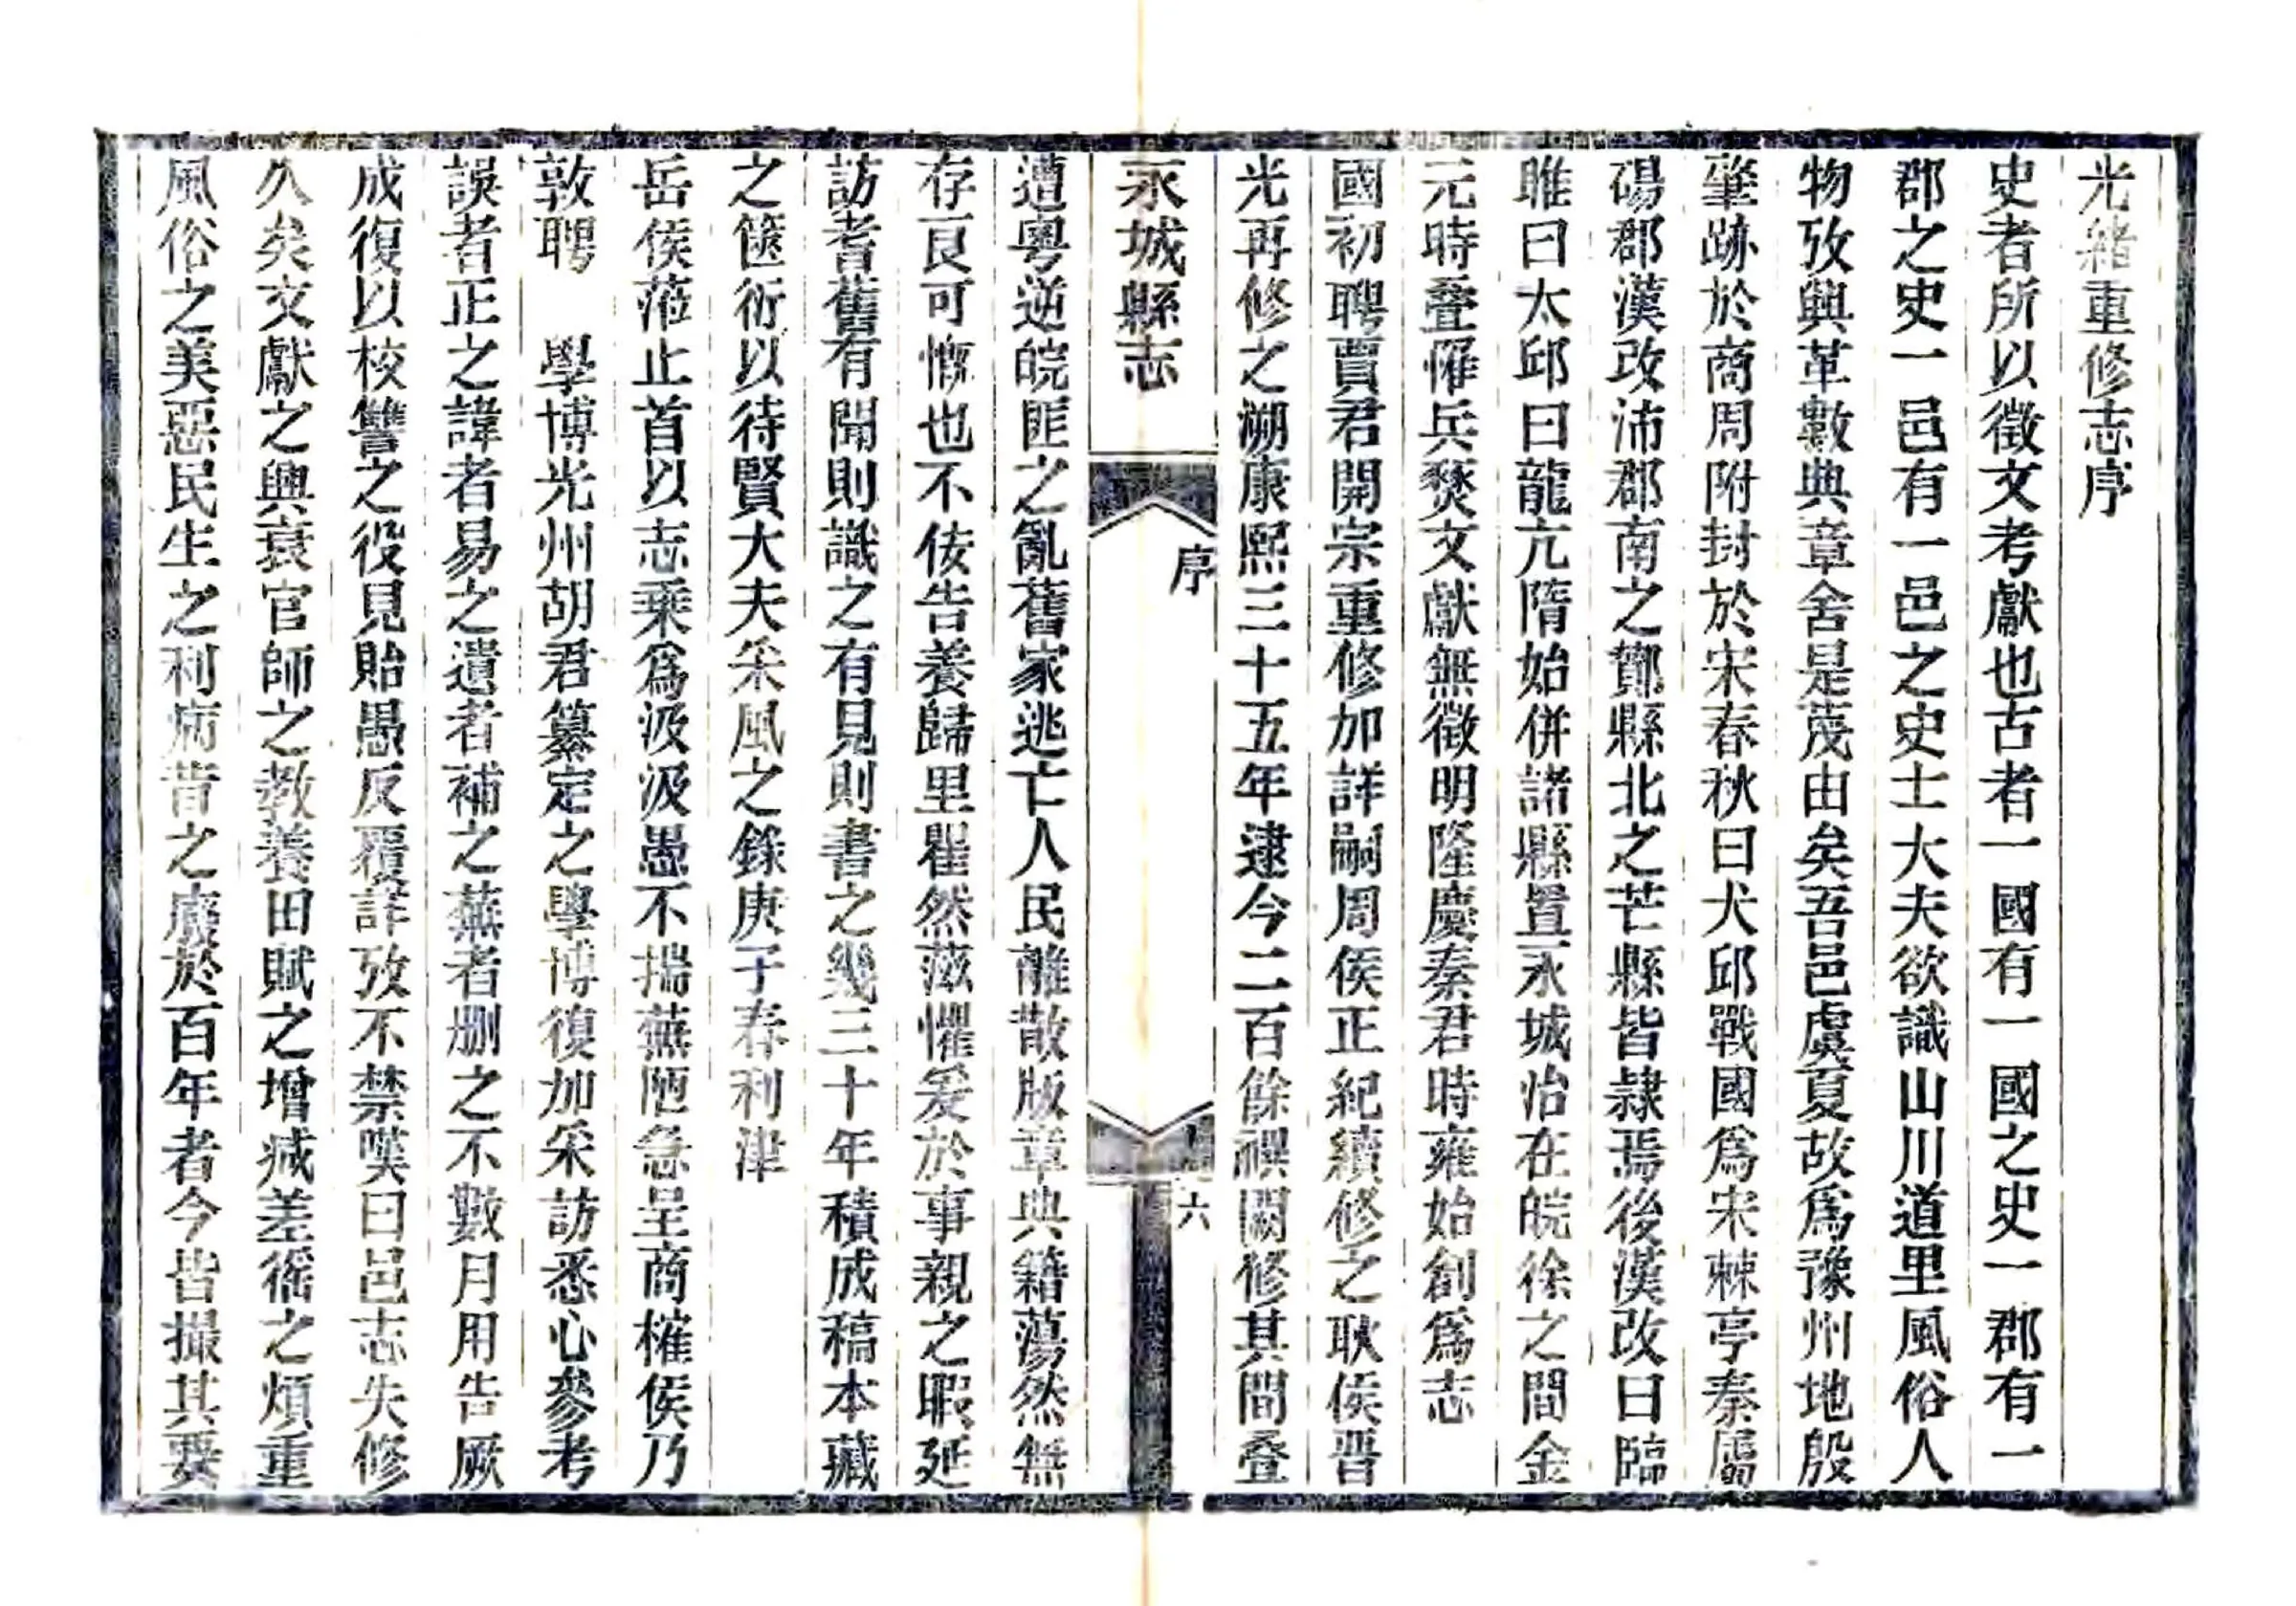 光緒重修志序
史者所以徵文考獻也古者一國有一國之史一郡有一
郡之史一邑有一邑之史士大夫欲識山川道里風俗人
物攷興革數典章舍是蔑由矣吾邑虞夏故爲豫州地殷
肇跡於商周附封於宋春秋曰犬邱戰國爲宋棘亭秦屬
碭郡漢改沛郡南之酇縣北之芒縣皆隸焉後漢改曰臨
睢曰太邱曰龍亢隋始併諸縣置永城怡在皖徐之間金
元時疊罹兵燹文獻無徵明隆慶秦君時雍始創爲志
國初聘賈君開宗重修加詳嗣周侯正紀續修之耿侯晋
光再修之溯康熙三十五年逮今二百餘禩闕修其間疊
永城縣志
序
六
遭粵逆皖匪之亂舊家逃亡人民離散版章典籍蕩然無
存良可慨也不侫告養歸里瞿然滋懼爰於事親之暇延
訪耆舊有聞則識之有見則書之幾三十年積成稿本藏
之篋衍以待賢大夫采風之錄庚子春利津
岳侯蒞止首以志乘爲汲汲愚不揣蕪陋急呈商榷侯乃
敦聘　學博光州胡君纂定之學博復加采訪悉心參考
誤者正之諱者易之遺者補之蕪者刪之不數月用告厥
成復以校讐之役見貽愚反覆詳攷不禁嘆曰邑志失修
久矣文獻之興衰官師之教養田賦之增減差徭之煩重
風俗之美惡民生之利病昔之廢於百年者今皆撮其要